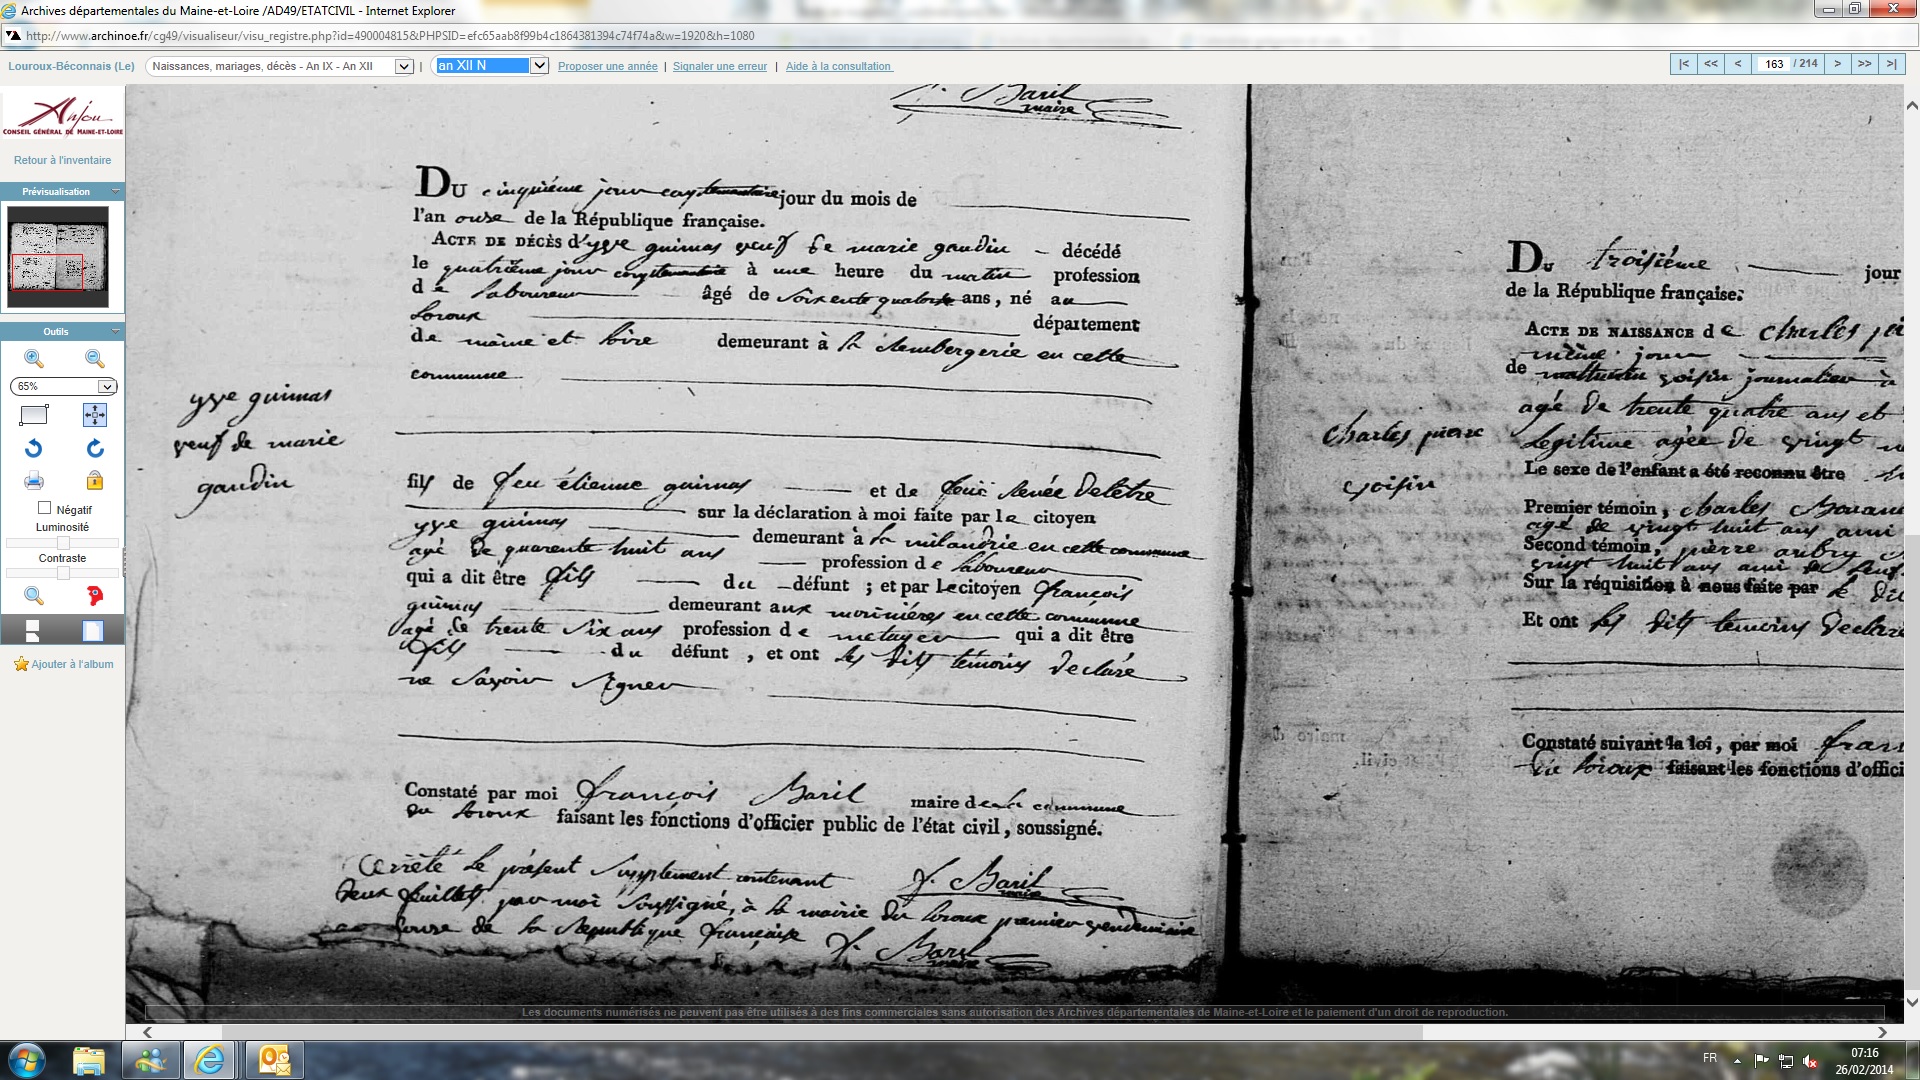 Archives départementales du Maine-et-Loire /AD49/ETATCIVIL - Internet Explorer
http://www.archinoe.fr/cg49/visualiseur/visu_registre.php?id=490004815&PHPSID=efc65aab8f99b4c1864381394c74f74a&w=1920&h=1080
Louroux-Béconnais (Le) Naissances, mariages, décès - An IX - An XII | an XII N Proposer une année | Signaler une erreur | Aide à la consultation |< << < 163 / 214 > >> >|
Anjou
CONSEIL GÉNÉRAL DE MAINE-ET-LOIRE
Retour à l'inventaire
Prévisualisation
Outils
65%
Négatif
Luminosité
Contraste
Ajouter à l'album
f. Baril
maire
DU cinquième jour jour du mois de
l'an onse de la République française.
ACTE DE DÉCÈS d'yve guimas veuf de marie gaudin décédé
le quatrième jour à une heure du matin profession
de laboureur âgé de soixente quatorse ans, né au
Loroux département
de maine et loire demeurant à la en cette
commune
yve guimas
veuf de marie
gaudin
fils de feu étienne guimas et de feuë Renée Deletre
sur la déclaration à moi faite par le citoyen
yve guimas demeurant à la milandrie en cette commune
agé de quarente huit ans profession de laboureur
qui a dit être fils du défunt ; et par le citoyen françois
guimas demeurant aux morinières en cette commune
agé de trente six ans profession de metayer qui a dit être
fils du défunt, et ont les dits témoins declaré
ne savoir signer
Constaté par moi françois Baril maire de la commune
du Loroux faisant les fonctions d'officier public de l'état civil, soussigné.
f. Baril
maire
arrêté le présent supplement contenant
deux feuillets par moi soussigné, à la mairie du loroux premier vendemiaire
an douse de la République française f. Baril
maire
DU troisiéme jour
de la République française.
ACTE DE NAISSANCE de charles
même jour
de voisin journalier à
agé de trente quatre ans et
Legitime agée de vingt
Le sexe de l'enfant a été reconnu être
charles pierre
voisin
Premier témoin, charles
agé de vingt huit ans ami
Second témoin, pierre aubry
vingt huit ans ami
Sur la réquisition à nous faite par le dit
Et ont les dits temoins declaré
Constaté suivant la loi, par moi fran
du loroux faisant les fonctions d'offici
Les documents numérisés ne peuvent pas être utilisés à des fins commerciales sans autorisation des Archives départementales de Maine-et-Loire et le paiement d'un droit de reproduction.
FR
07:16
26/02/2014